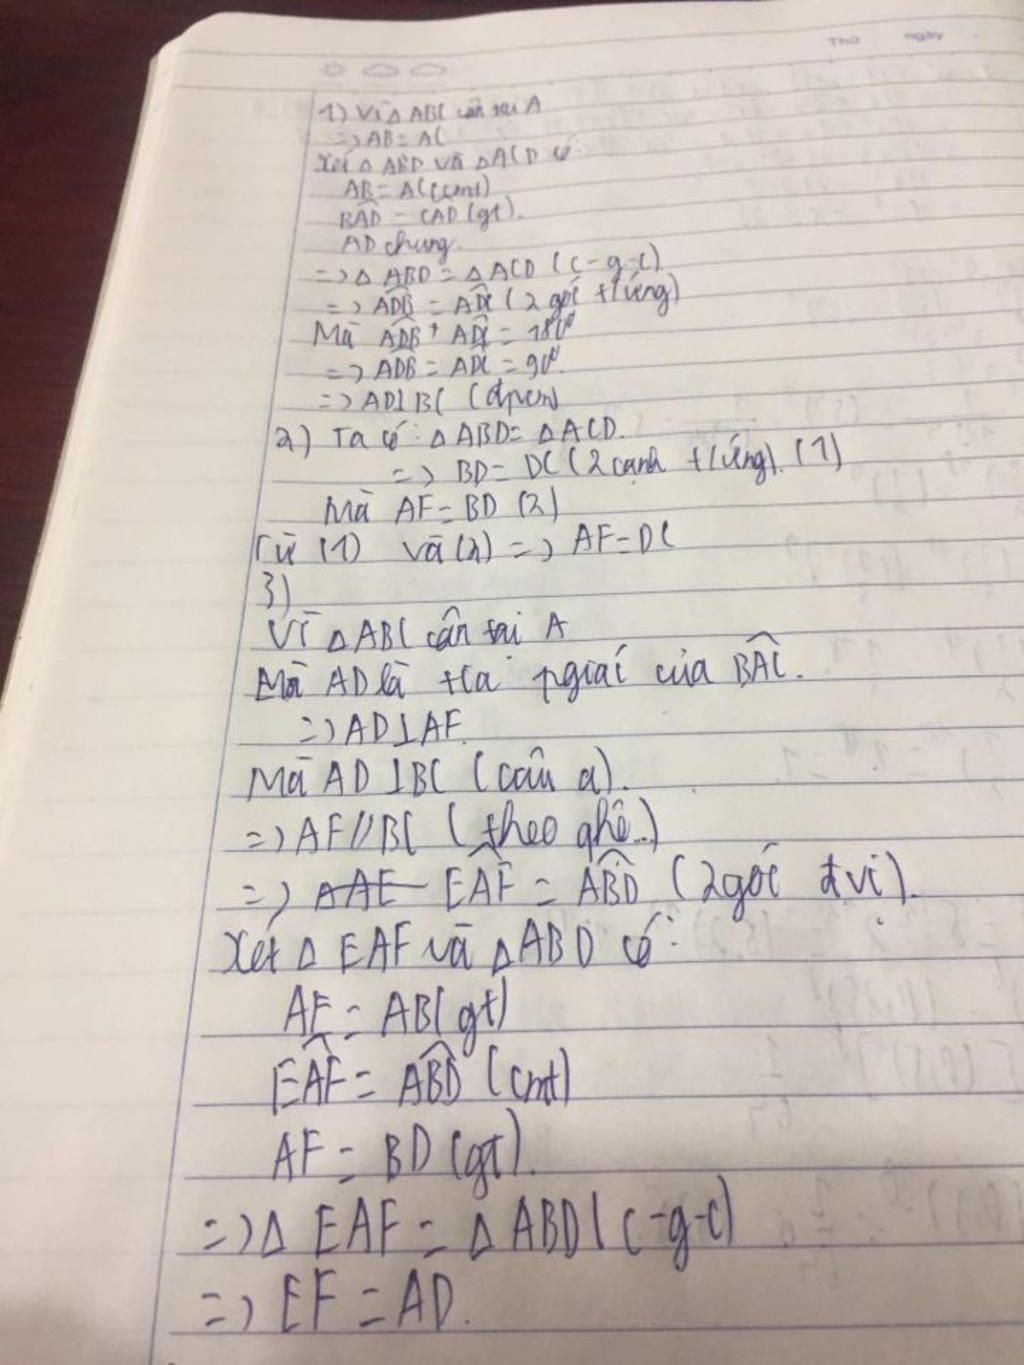 Thứ ngày
1) Vì △ABC cân tại A
=> AB = AC
Xét △ABD và △ACD có:
AB = AC (cmt)
BAD = CAD (gt).
AD chung.
=> △ABD = △ACD (c-g-c)
=> ADB = ADC (2 góc t/ứng)
Mà ADB + ADC = 180°
=> ADB = ADC = 90°.
=> AD⊥BC (đpcm)
2) Ta có: △ABD = △ACD.
=> BD = DC (2 cạnh t/ứng). (1)
Mà AF = BD (2)
Từ (1) và (2) => AF = DC
3)
Vì △ABC cân tại A
Mà AD là tia pgiác của BAC.
=> AD⊥AF.
Mà AD⊥BC (câu a).
=> AF//BC (theo ghê..)
=> △AE EAF = ABD (2 góc đ vị).
Xét △EAF và △ABD có:
AE = AB (gt)
EAF = ABD (cmt)
AF = BD (gt).
=> △EAF = △ABD (c-g-c)
=> EF = AD.